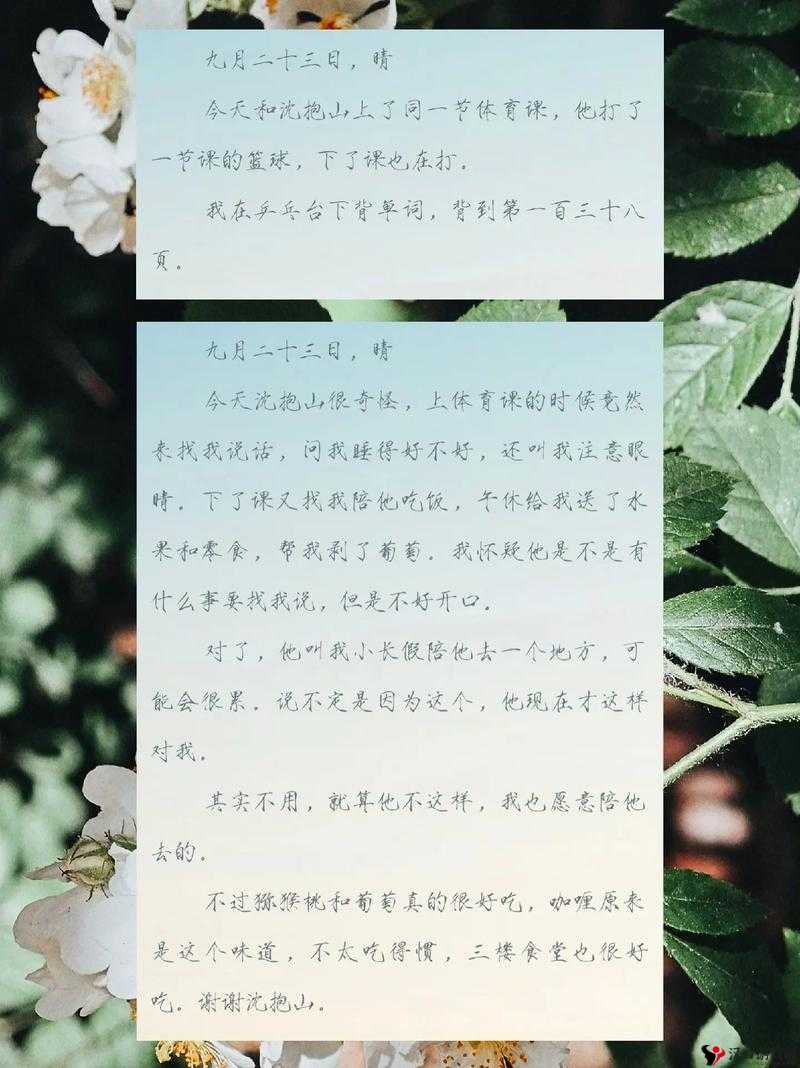 九月二十三日，晴
今天和沈抱山上了同一节体育课，他打了
一节课的篮球，下了课也在打。
我在乒乓台下背单词，背到第一百三十八
页。
九月二十三日，晴
今天沈抱山很奇怪，上体育课的时候竟然
来找我说话，问我睡得好不好，还叫我注意眼
睛。下了课又找我陪他吃饭，午休给我送了水
果和零食，帮我剥了葡萄。我怀疑他是不是有
什么事要找我说，但是不好开口。
对了，他叫我小长假陪他去一个地方，可
能会很累。说不定是因为这个，他现在才这样
对我。
其实不用，就算他不这样，我也愿意陪他
去的。
不过猕猴桃和葡萄真的很好吃，咖喱原来
是这个味道，不太吃得惯，三楼食堂也很好
吃。谢谢沈抱山。